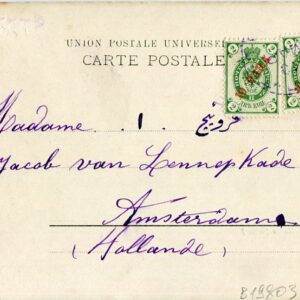 UNION POSTALE UNIVERSE
CARTE POSTALE
Madame
Jacob van Lennepkade
Amsterdam
(Hollande)
B19803